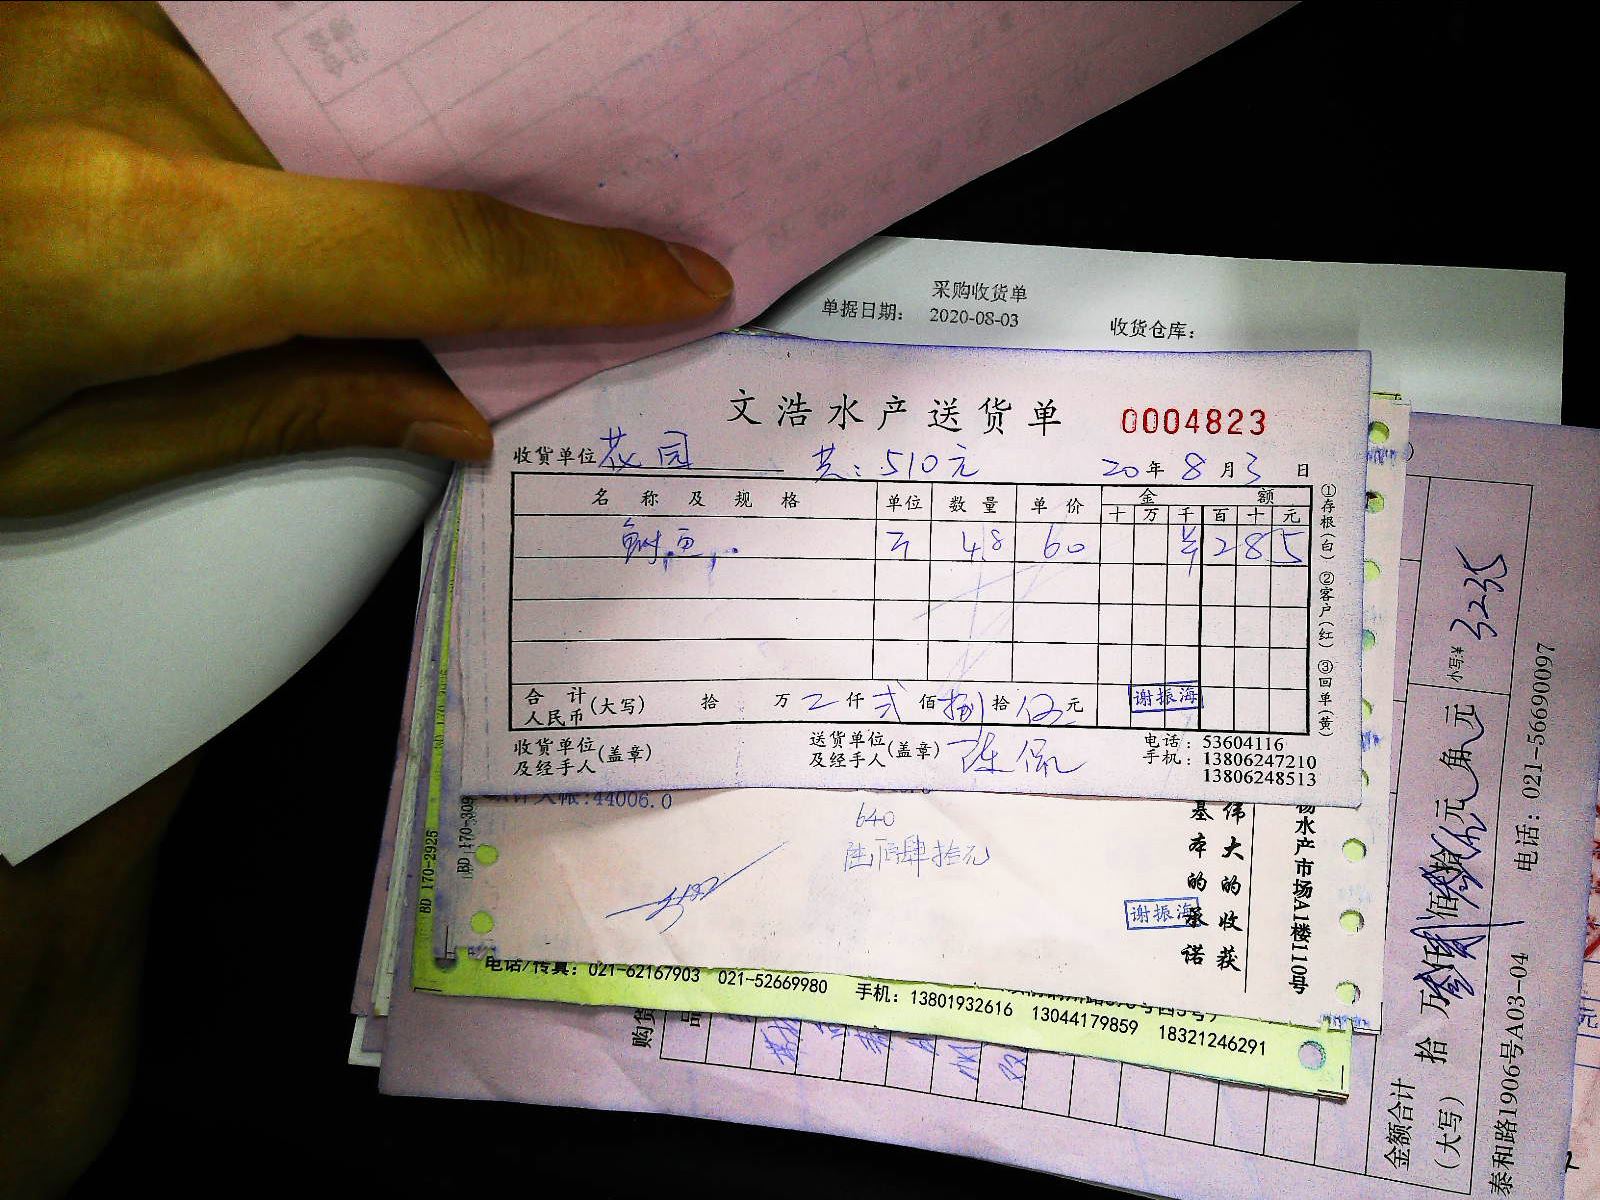 采购收货单
单据日期： 2020-08-03 收货仓库：
文浩水产送货单 0004823
收货单位 花园 共：510元 20年8月3日
名称及规格 单位 数量 单价 金额
十 万 千 百 十 元
鱼 48 60 285
①存根（白） ②客户（红） ③回单（黄）
合计 人民币(大写) 拾 万 仟 弍 佰 捌 拾 伍 元
谢振海
收货单位及经手人(盖章) 送货单位及经手人(盖章) 陈
电话：53604116
手机：13806247210
13806248513
:44006.0
640
陆佰肆拾元
谢振海
基本的承诺
伟大的收获
水产市场A1楼110号
BD 170-309
BD 170-2925
电话/传真：021-62167903 021-52669980 手机：13801932616 13044179859 18321246291
购货
品
小写:¥ 3235
金额合计（大写） 拾 万 仟 佰 元 角 元
泰和路1906号A03-04 电话：021-56690097